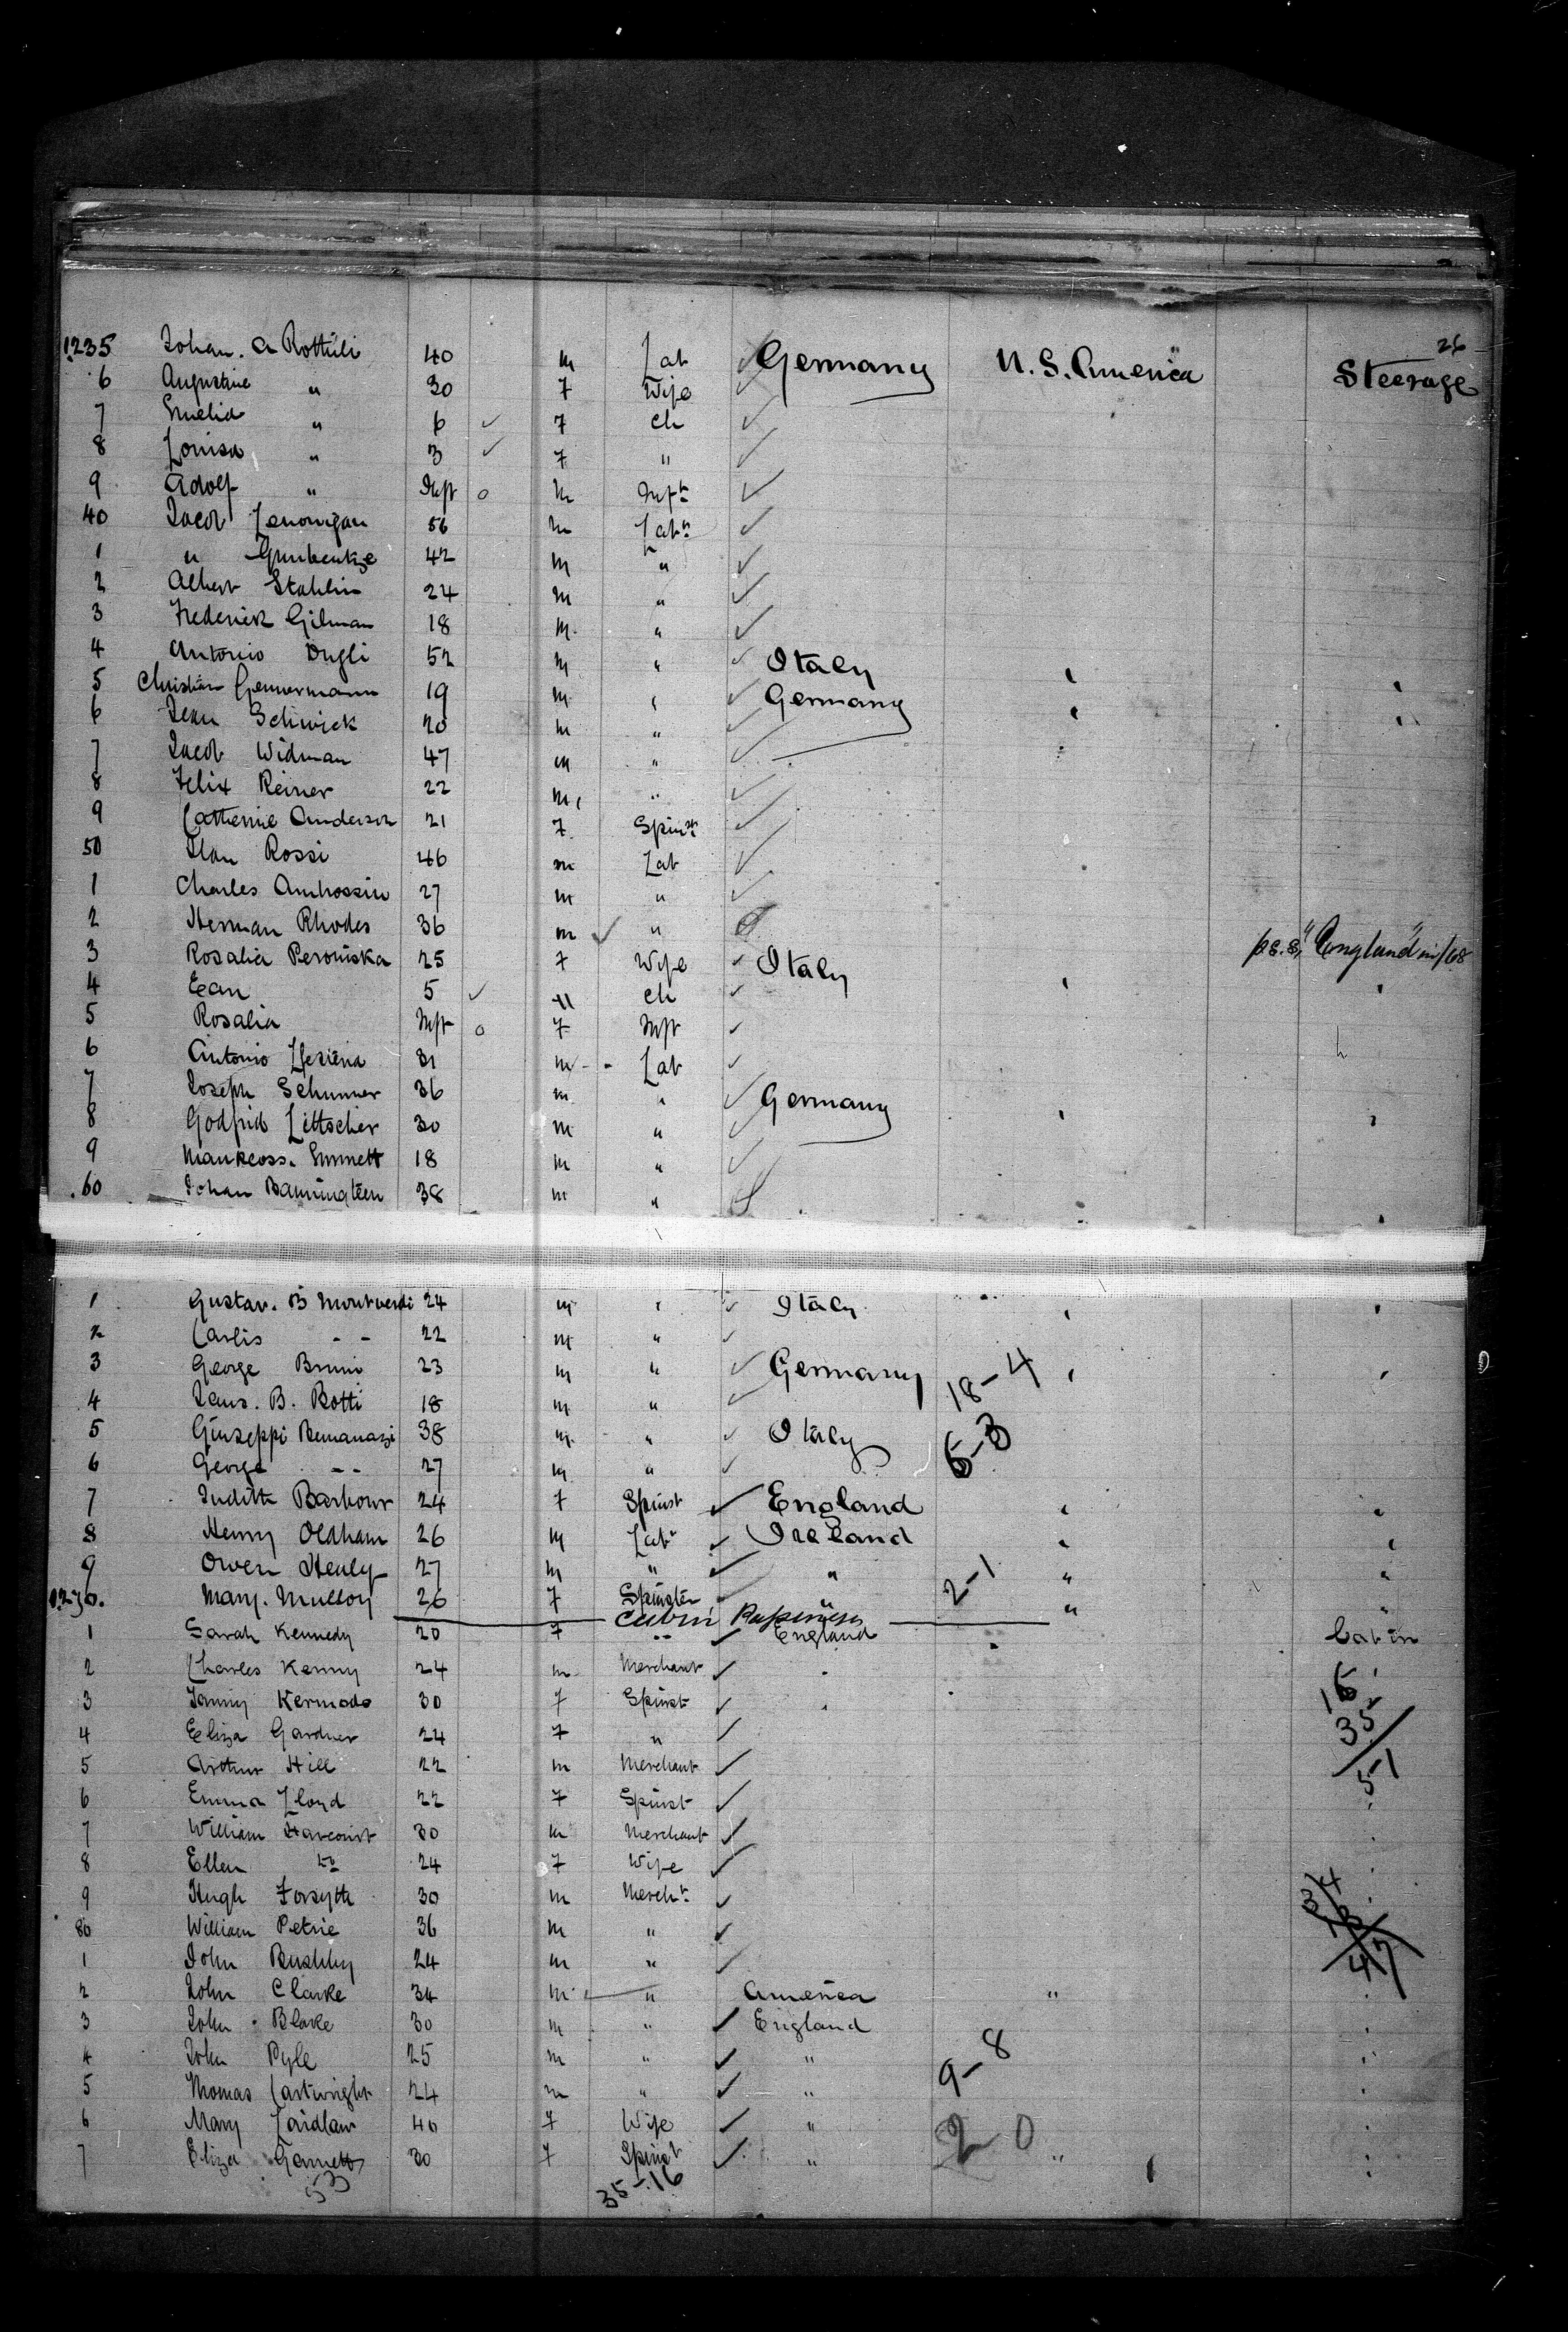 26
1235 Johan. A Rottuli 40 m Lab Germany U. S. America Steerage
6 Augustine " 30 F Wife
7 " 6 F Ch
8 Louisa " 3 F "
9 Adolf " Inft o m Inft
40 Jacob 56 m Labr
1 " 42 m "
2 Albert Stahlin 24 m "
3 Frederick Gilman 18 m "
4 Antonio 52 m " Italy "
5 Christian 19 m " Germany " "
6 Jean Schwick 20 m "
7 Jacob Widman 47 m "
8 Felix Reiner 22 m "
9 Catherine Anderson 21 F Spinstr
50 Jean Rossi 46 m Lab
1 Charles 27 m "
2 Herman Rhodes 36 m "
p s.s. "England" in /68
3 Rosalia Peroniska 25 F Wife Italy " "
4 Ean 5 Ch
5 Rosalia Inft o F Inft
6 Antonio 31 m Lab
7 Joseph Schumner 36 m " Germany " "
8 Godfrid Littscher 30 m "
9 18 m "
60 Johan 38 m "
1 Gustav. B Montverdi 24 m " Italy " "
2 Carlis - - 22 m "
3 George Bruni 23 m " Germany " "
18-4
4 B. Botti 18 m "
5 Giuseppi 38 m " Italy
6-3
6 George - - 27 m "
7 Judith Barbour 24 F Spinst England " "
8 Henry Oldham 26 m Labr Ireland " "
9 Owen Healy 27 m " " " "
2-1
1270. Mary. Mulloy 26 F Spinster " " "
Cabin
1 Sarah Kennedy 20 F " England " Cabin
2 Charles Kenny 24 m Merchant " "
16
3 Fanny Kermode 30 F Spinst "
35
4 Eliza Gardner 24 F "
51
5 Arthur Hill 22 m Merchant
6 Emma Lloyd 22 F Spinst
7 William Harcourt 30 m Merchant
8 Ellen Do 24 F Wife
9 Hugh Forsyth 30 m Mercht
34
13
47
80 William Petrie 36 m "
1 John Bushby 24 m "
2 John Clarke 34 m " America "
3 John Blake 30 m " England
4 John Pyle 25 m " "
9-8
5 Thomas Cartwright 24 m " "
6 Mary Laidlaw 40 F Wife "
2 0
7 Eliza Garnett 30 F Spinst " "
53
35-16